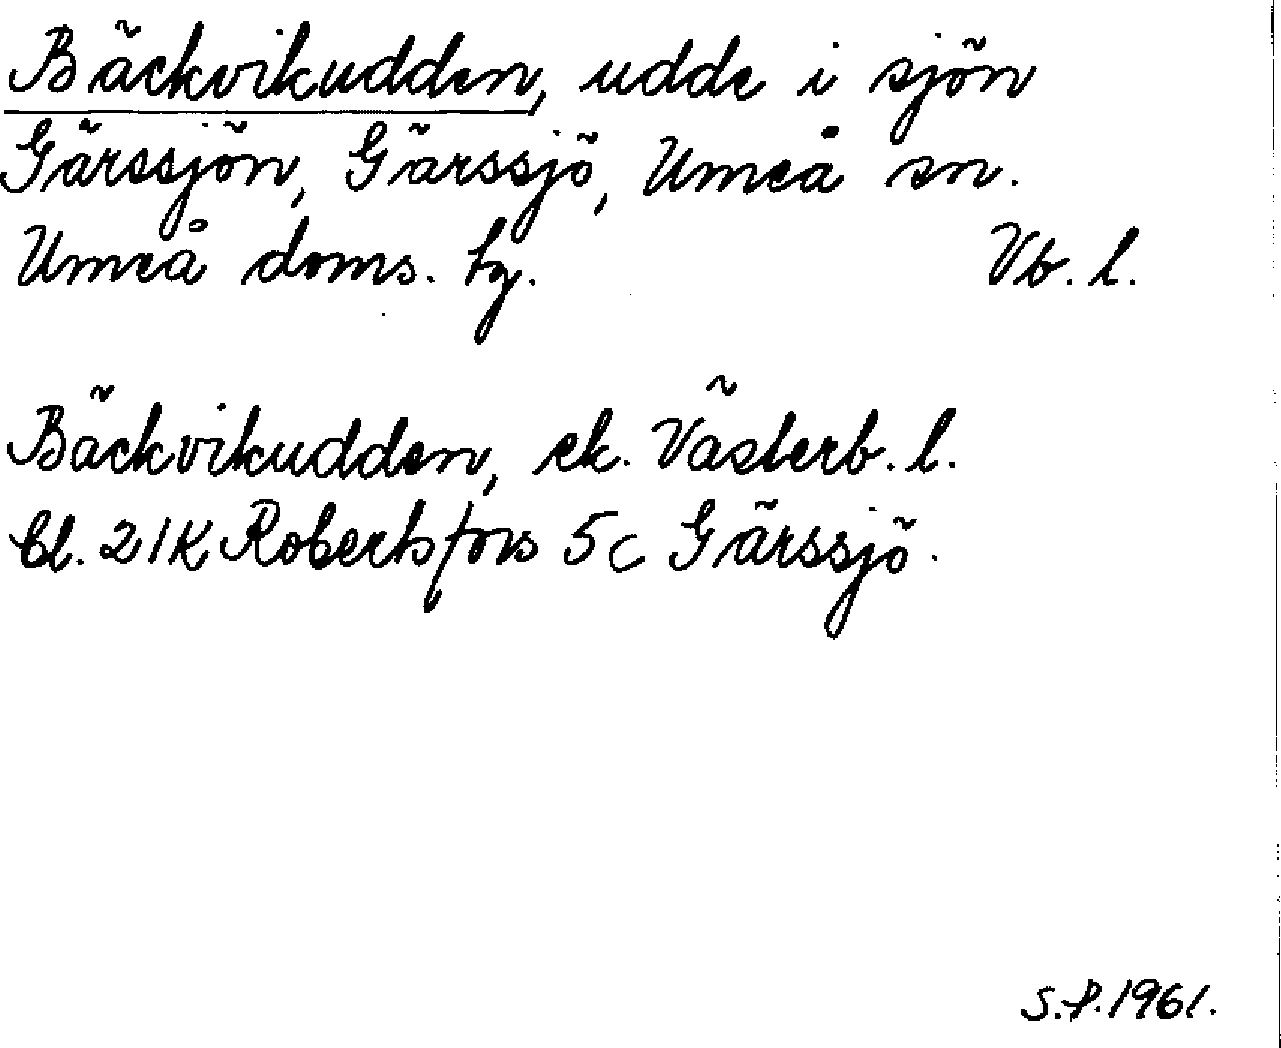 Bäckvikudden, udde i sjön
Gärssjön, Gärssjö, Umeå sn.
Umeå doms. tg. Vb. l.
Bäckvikudden, ek. Västerb. l.
bl. 21K Robertsfors 5c Gärssjö.
S.P. 1961.